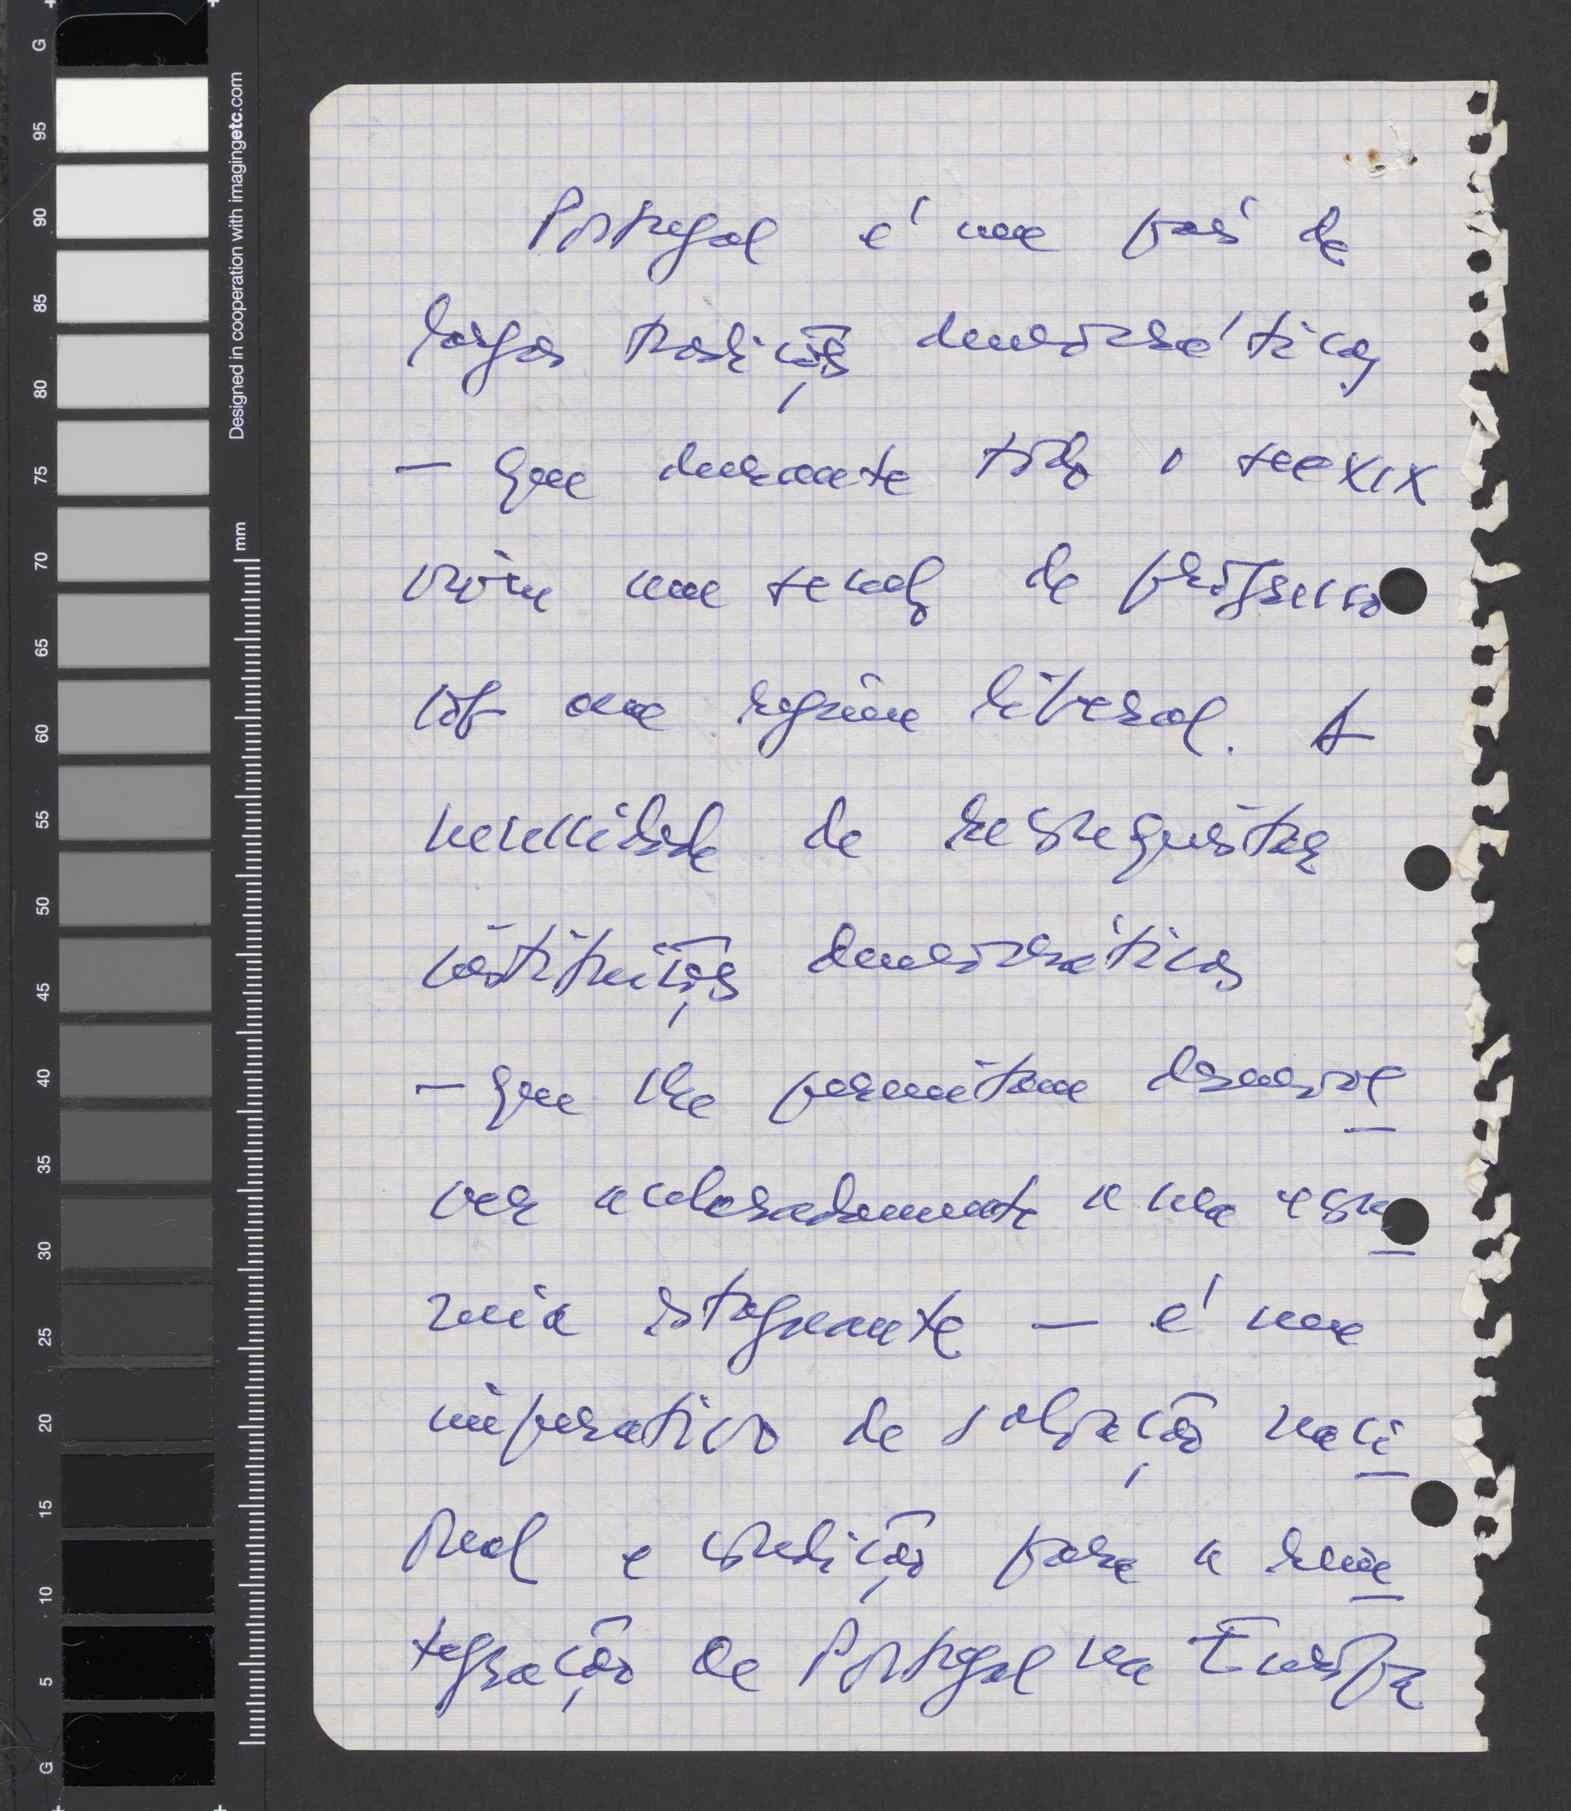 G
95
90
85
80
75
70
65
60
55
50
45
40
35
30
25
20
15
10
5
G
Designed in cooperation with imagingetc.com
mm
Portugal é um país de
largas tradições democráticas
— que durante todo o sec XIX
viveu um tempo de progresso
sob um regime liberal. A
necessidade de reconquistar
instituições democráticas
— que lhe permitam desenvol
ver aceleradamente a sua econo
mia estagnante — é um
imperativo de salvação naci
onal e condição para a rein
tegração de Portugal na Europa